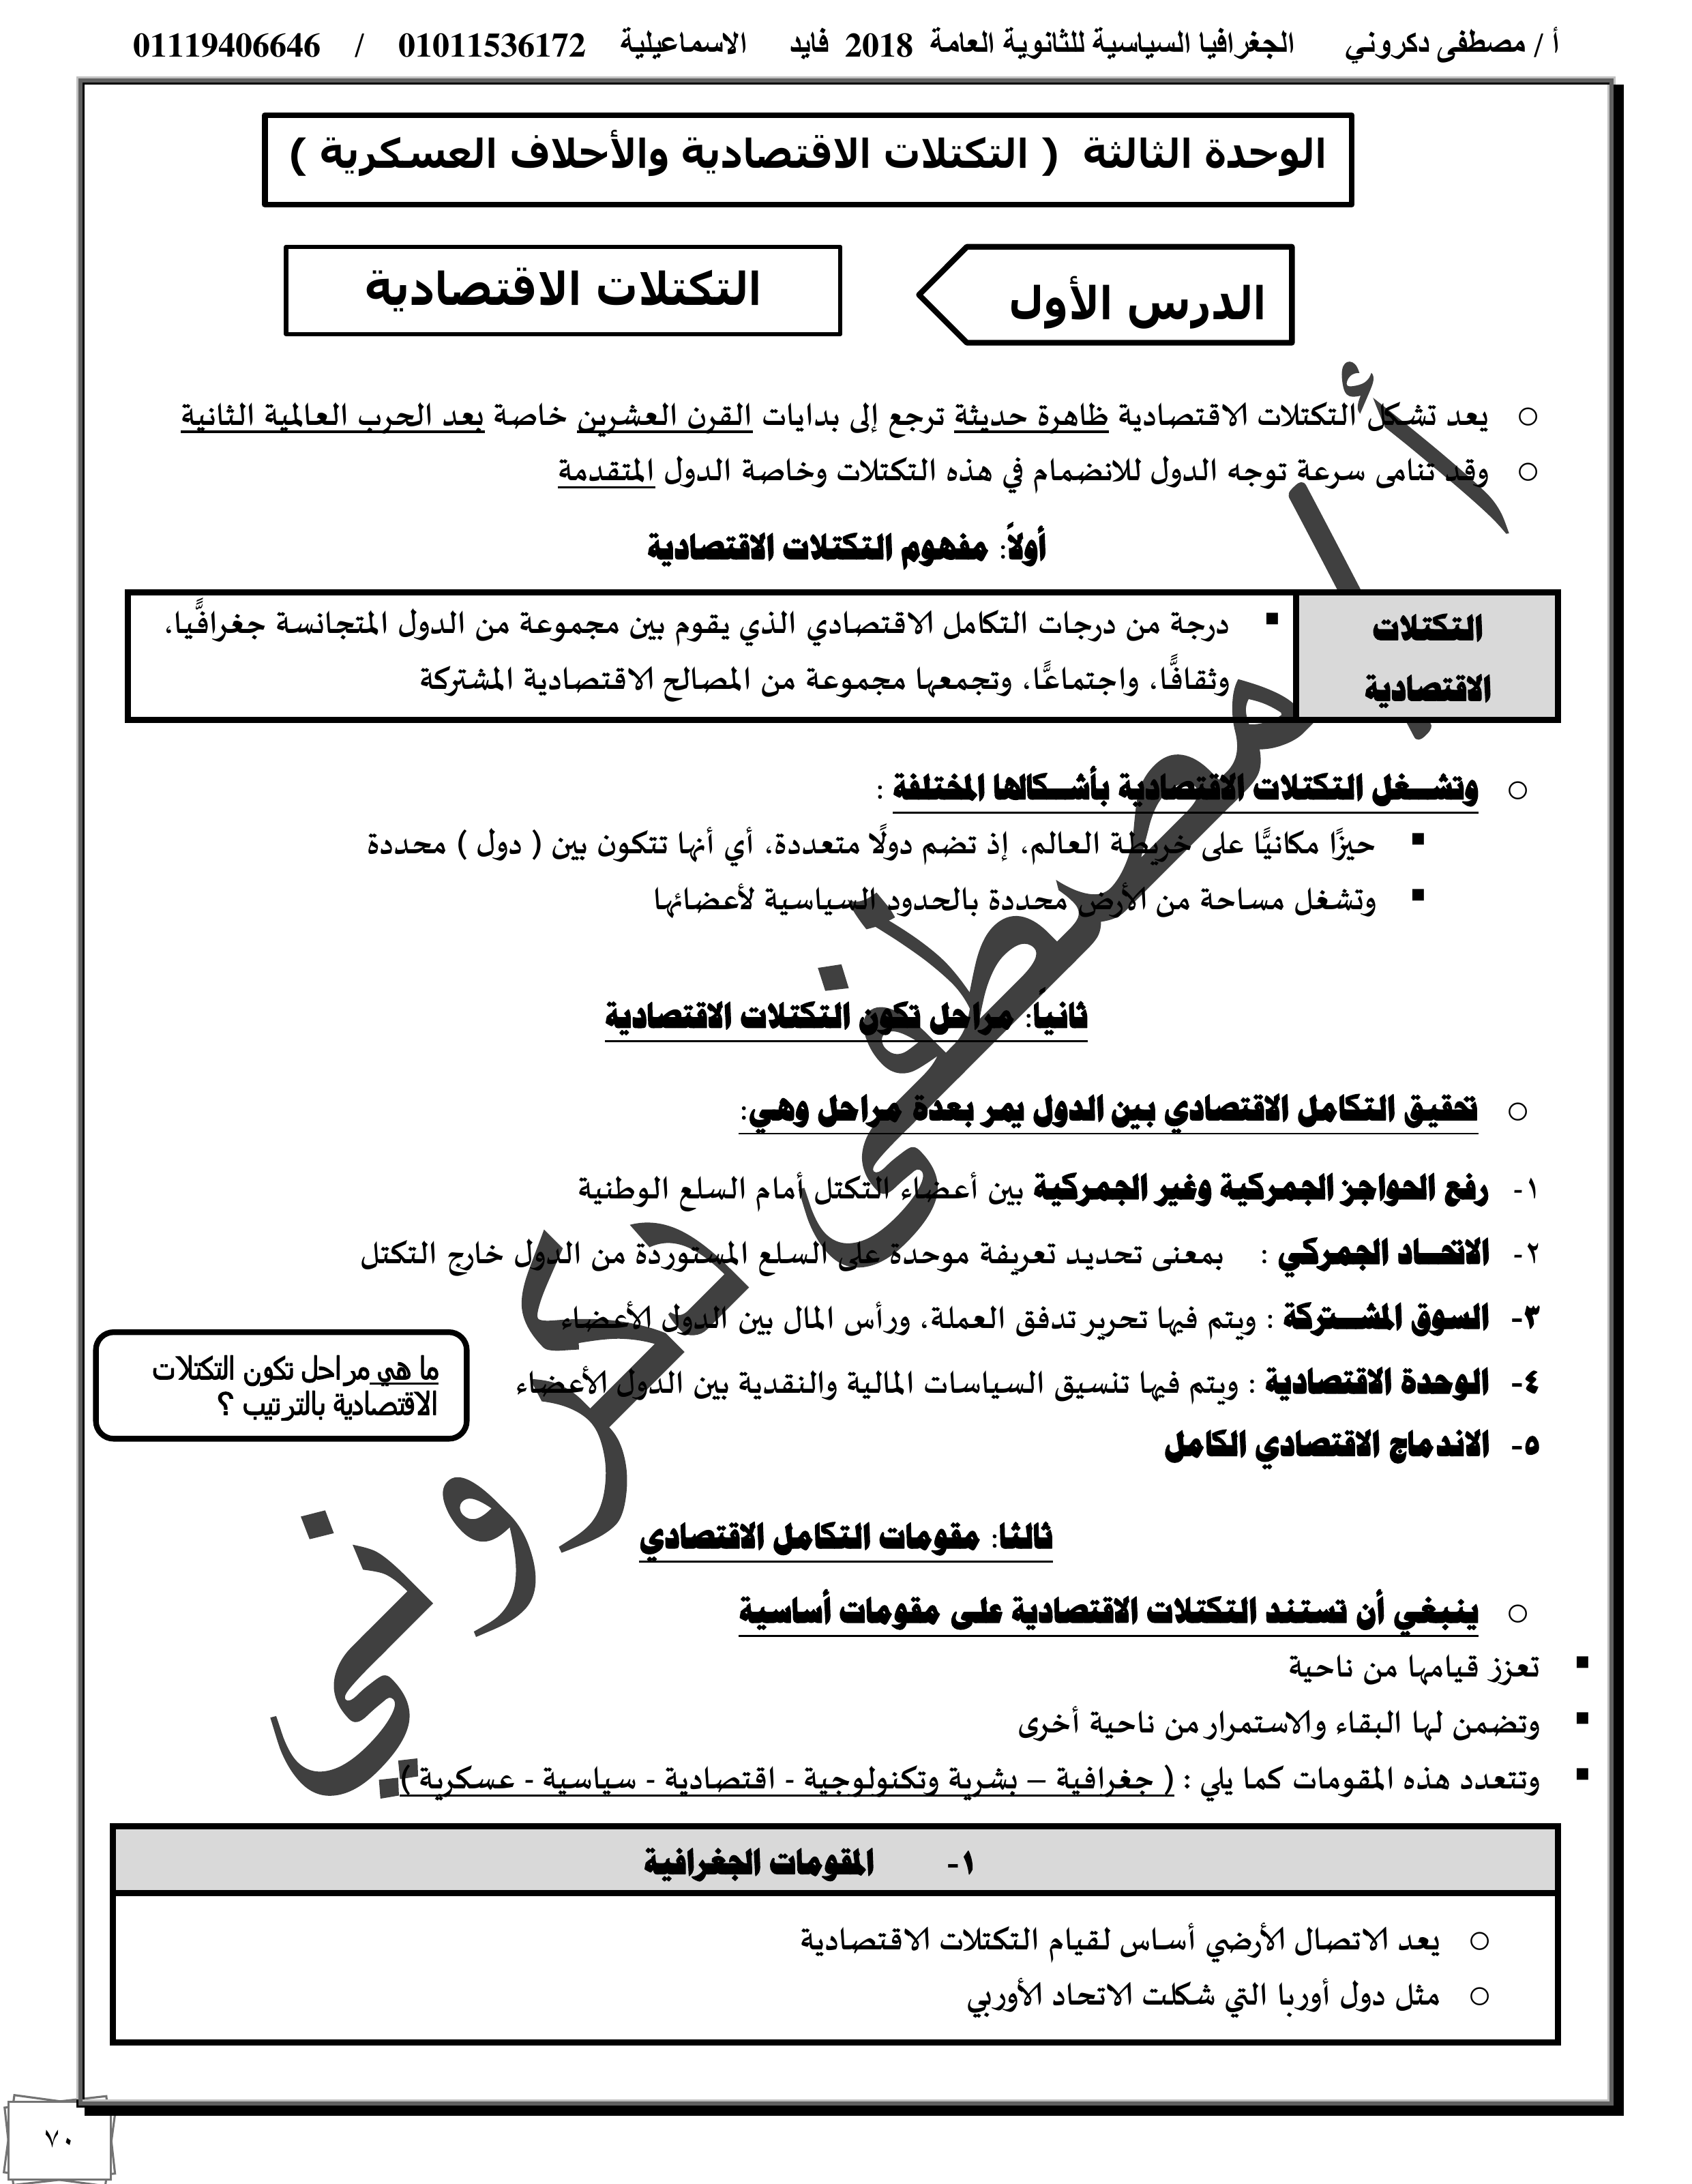 أ / مصطفى دكروني الجغرافيا السياسية للثانوية العامة 2018 فايد الاسماعيلية 01011536172 / 01119406646
الوحدة الثالثة ( التكتلات الاقتصادية والأحلاف العسكرية )
الدرس الأول
التكتلات الاقتصادية
يعد تشكل التكتلات الاقتصادية ظاهرة حديثة ترجع إلى بدايات القرن العشرين خاصة بعد الحرب العالمية الثانية
وقد تنامى سرعة توجه الدول للانضمام في هذه التكتلات وخاصة الدول المتقدمة
أولاً: مفهوم التكتلات الاقتصادية
التكتلات
الاقتصادية
▪ درجة من درجات التكامل الاقتصادي الذي يقوم بين مجموعة من الدول المتجانسة جغرافًيا،
وثقافًا، واجتماعًا، وتجمعها مجموعة من المصالح الاقتصادية المشتركة
وتشـــغل التكتلات الاقتصادية بأشـــكالها المختلفة :
▪ حيزًا مكانيًّا على خريطة العالم، إذ تضم دولًا متعددة، أي أنها تتكون بين ( دول ) محددة
▪ وتشغل مساحة من الأرض محددة بالحدود السياسية لأعضائها
ثانياً: مراحل تكون التكتلات الاقتصادية
تحقيق التكامل الاقتصادي بين الدول يمر بعدة مراحل وهي:
١- رفع الحواجز الجمركية وغير الجمركية بين أعضاء التكتل أمام السلع الوطنية
٢- الاتحـــاد الجمركي : بمعنى تحديد تعريفة موحدة على السلع المستوردة من الدول خارج التكتل
٣- السوق المشـــتركة : ويتم فيها تحرير تدفق العملة، ورأس المال بين الدول الأعضاء
٤- الوحدة الاقتصادية : ويتم فيها تنسيق السياسات المالية والنقدية بين الدول الأعضاء
٥- الاندماج الاقتصادي الكامل
ما هي مراحل تكون التكتلات
الاقتصادية بالترتيب ؟
ثالثا: مقومات التكامل الاقتصادي
ينبغي أن تستند التكتلات الاقتصادية على مقومات أساسية
▪ تعزز قيامها من ناحية
▪ وتضمن لها البقاء والاستمرار من ناحية أخرى
▪ وتتعدد هذه المقومات كما يلي : ( جغرافية – بشرية وتكنولوجية - اقتصادية - سياسية - عسكرية )
١- المقومات الجغرافية
يعد الاتصال الأرضي أساس لقيام التكتلات الاقتصادية
مثل دول أوربا التي شكلت الاتحاد الأوربي
أ / مصطفى دكروني
٧٠